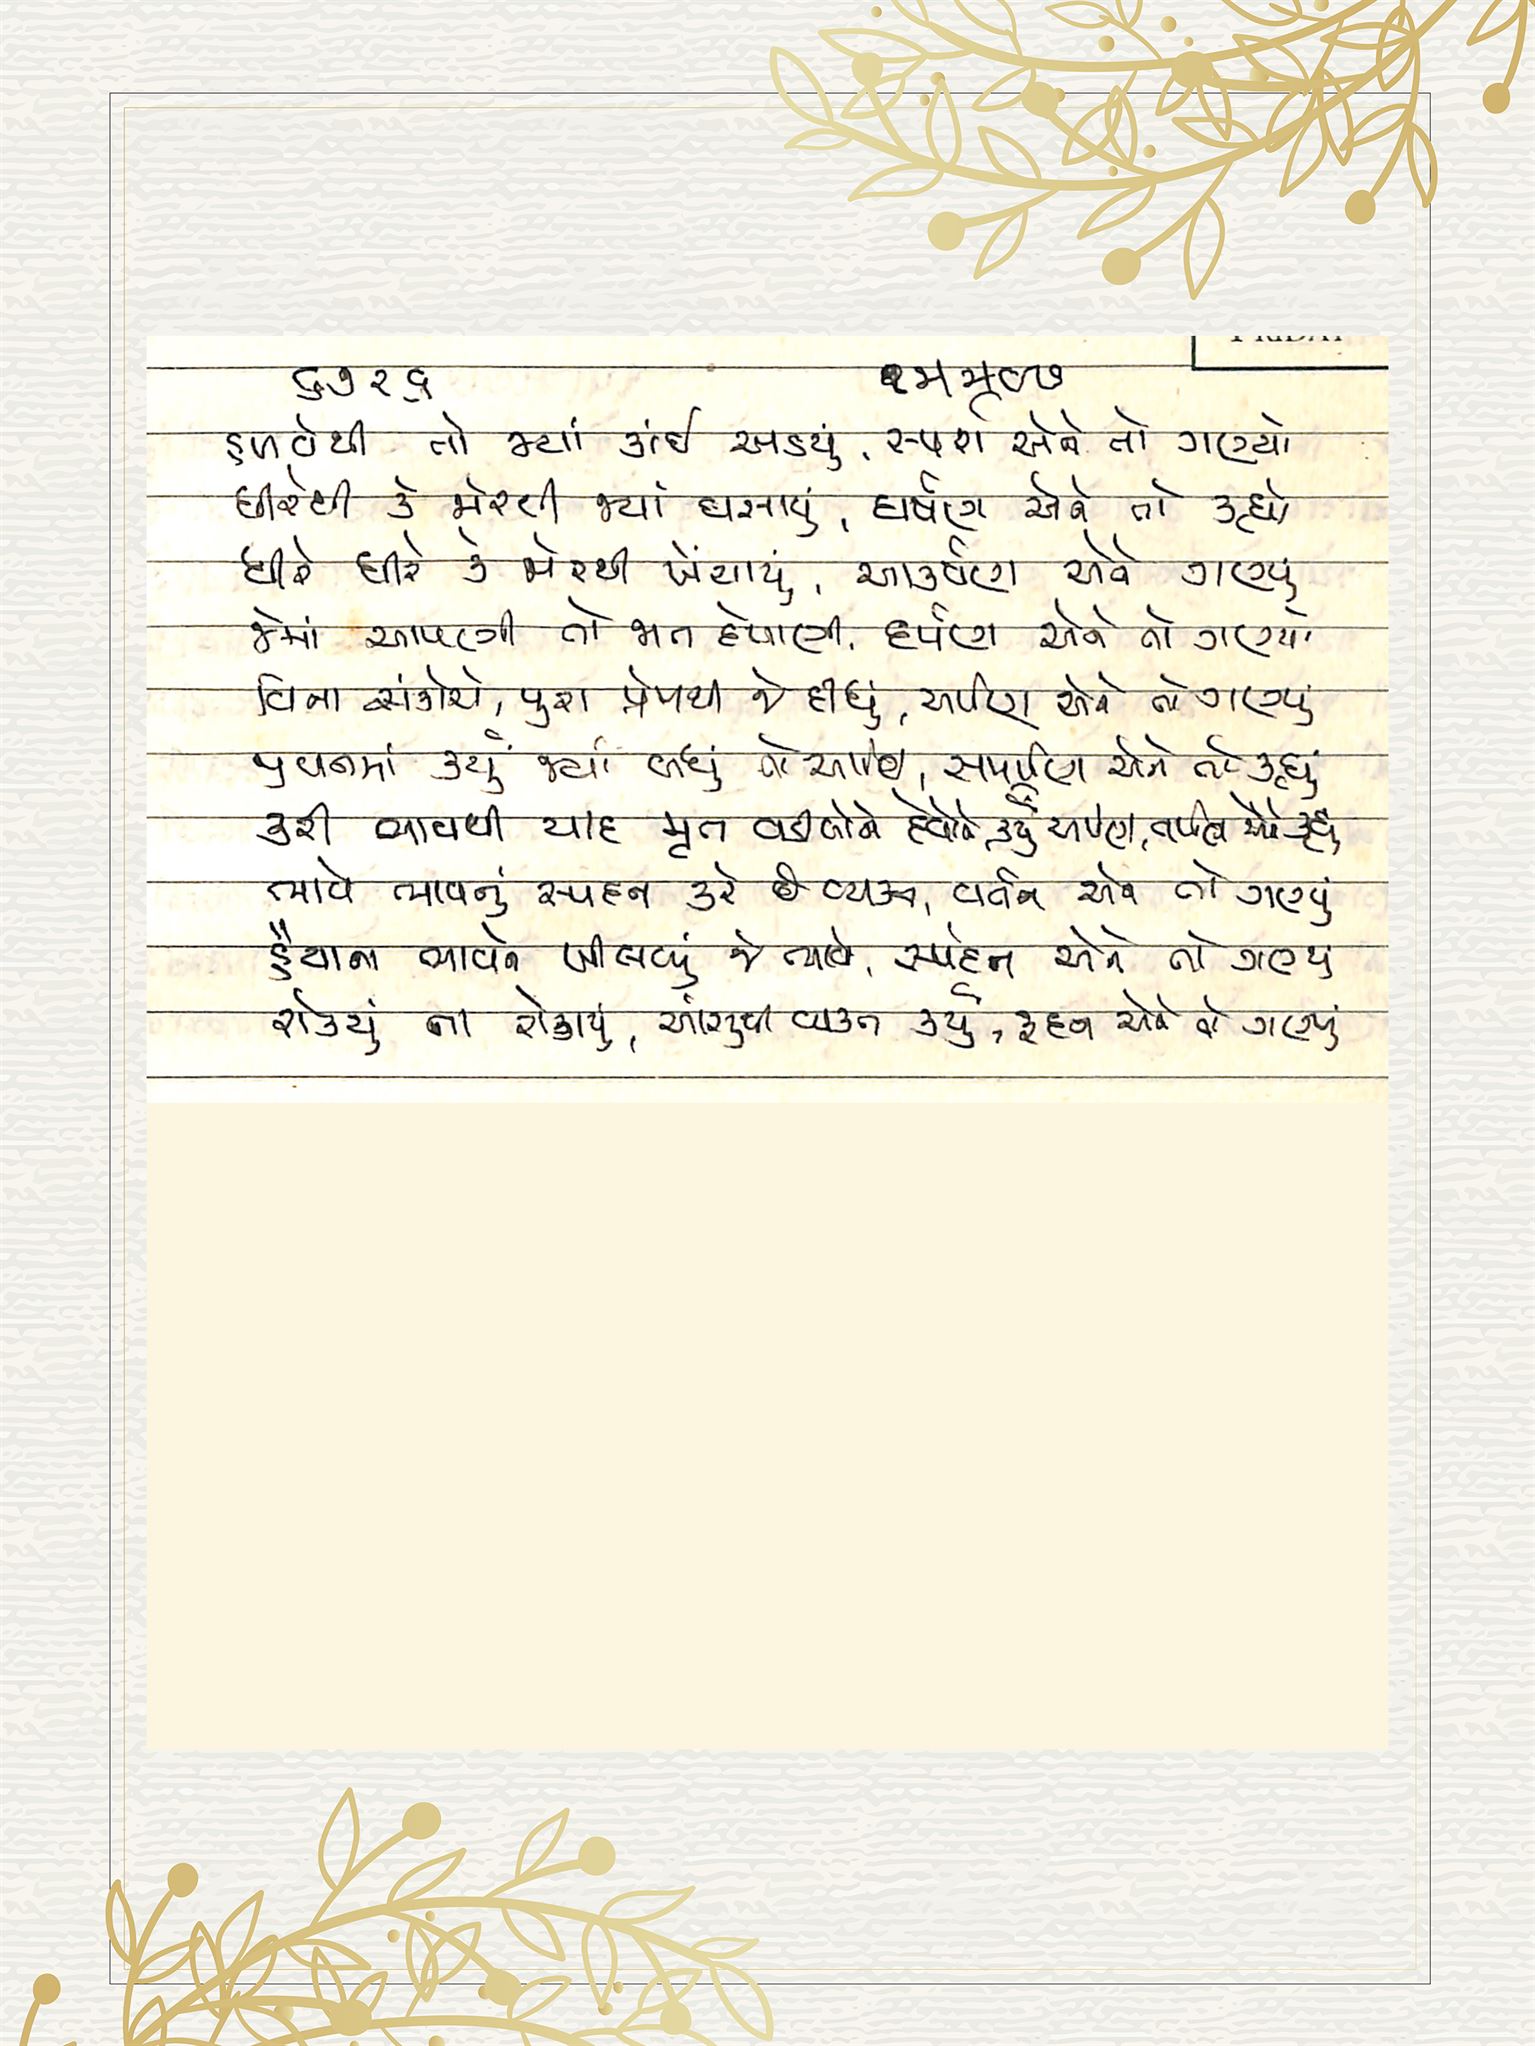 FRIDAY
૬૭૨૬
હળવેથી તો જ્યાં કાંઈ અડયું, સ્પર્શ એને તો ગણ્યો
ધીરેથી કે જોરથી જ્યાં ઘસાયું, ઘર્ષણ એને તો કહ્યો
ધીરે ધીરે કે જોરથી ખેંચાયું, આકર્ષણ એને ગણ્યુ
જેમાં આપણી તો જાત દેખાણી, દર્પણ એને તો ગણ્યો
વિના સંકોચે, પુરા પ્રેમથી જે દીધું, અર્પણ એને તો ગણ્યું
કર્યું જ્યાં બધું તો અર્પણ, સમર્પણ એને તો કહ્યું
કરી ભાવથી યાદ મૃત વડીલોને કર્યું અર્પણ, તર્પણ એને કહ્યું
ભાવે ભાવનું સ્પંદન કરે જે વ્યક્ત, વર્તન એને તો ગણ્યું
હૈયાના ભાવને ખીલવ્યું જે ભાવે, સ્પંદન એને તો ગણ્ય
રોક્યું ના રોકાયું, આંસુથી વ્યક્ત કર્યું, રૂદન એને તો ગણ્યું